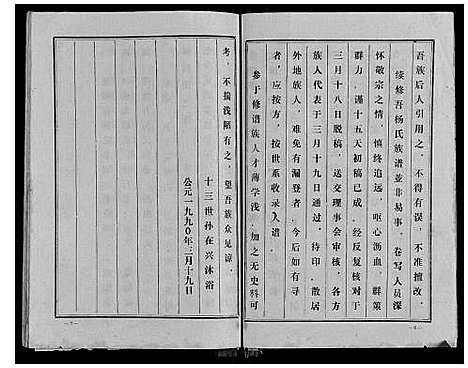 吾族后人引用之，不得有误，不准擅改。
续修吾杨氏族谱並非易事，卷写人员深
怀敬宗之情，慎终追远，呕心沥血，群策
群力，谨十五天初稿已成，经反复核对于
三月十八日脱稿，送交理事会审核，各方
族人代表于三月十九日通过，待印，散居
外地族人，难免有漏登者，今后如有寻
者，应按方，按世系收录入谱。
参于修谱族人才薄学浅，加之无史料可
考，不揣浅陋有之，望吾族众见谅。
十三世孙在兴沐浴
公元一九九〇年三月十九日